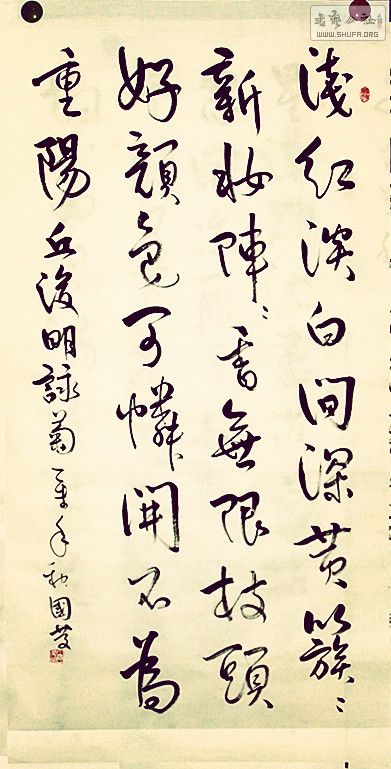 淺紅淡白间深黄簇〻
新妝陣〻香無限枝頭
好顏色可憐開不為
重陽 丘浚明詠菊 秋國
書藝公社
WWW.SHUFA.ORG